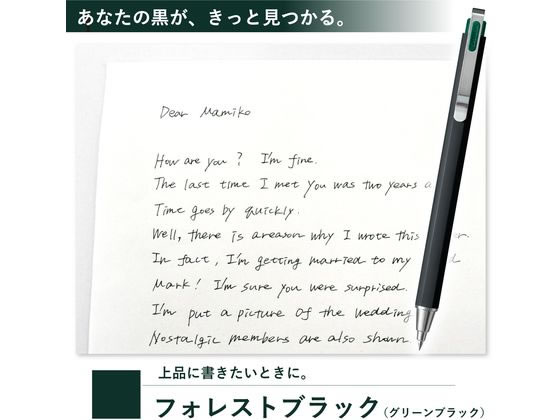 あなたの黒が、きっと見つかる。
Dear Mamiko
How are you? I'm fine.
The last time I met you was two years a
Time goes by quickly.
Well, there is areason why I wrote this
In fact, I'm getting married to my
Mark! I'm sure you were surprised.
I'm put a picture of the wedding
Nostalgic members are also shown
上品に書きたいときに。
フォレストブラック(グリーンブラック)